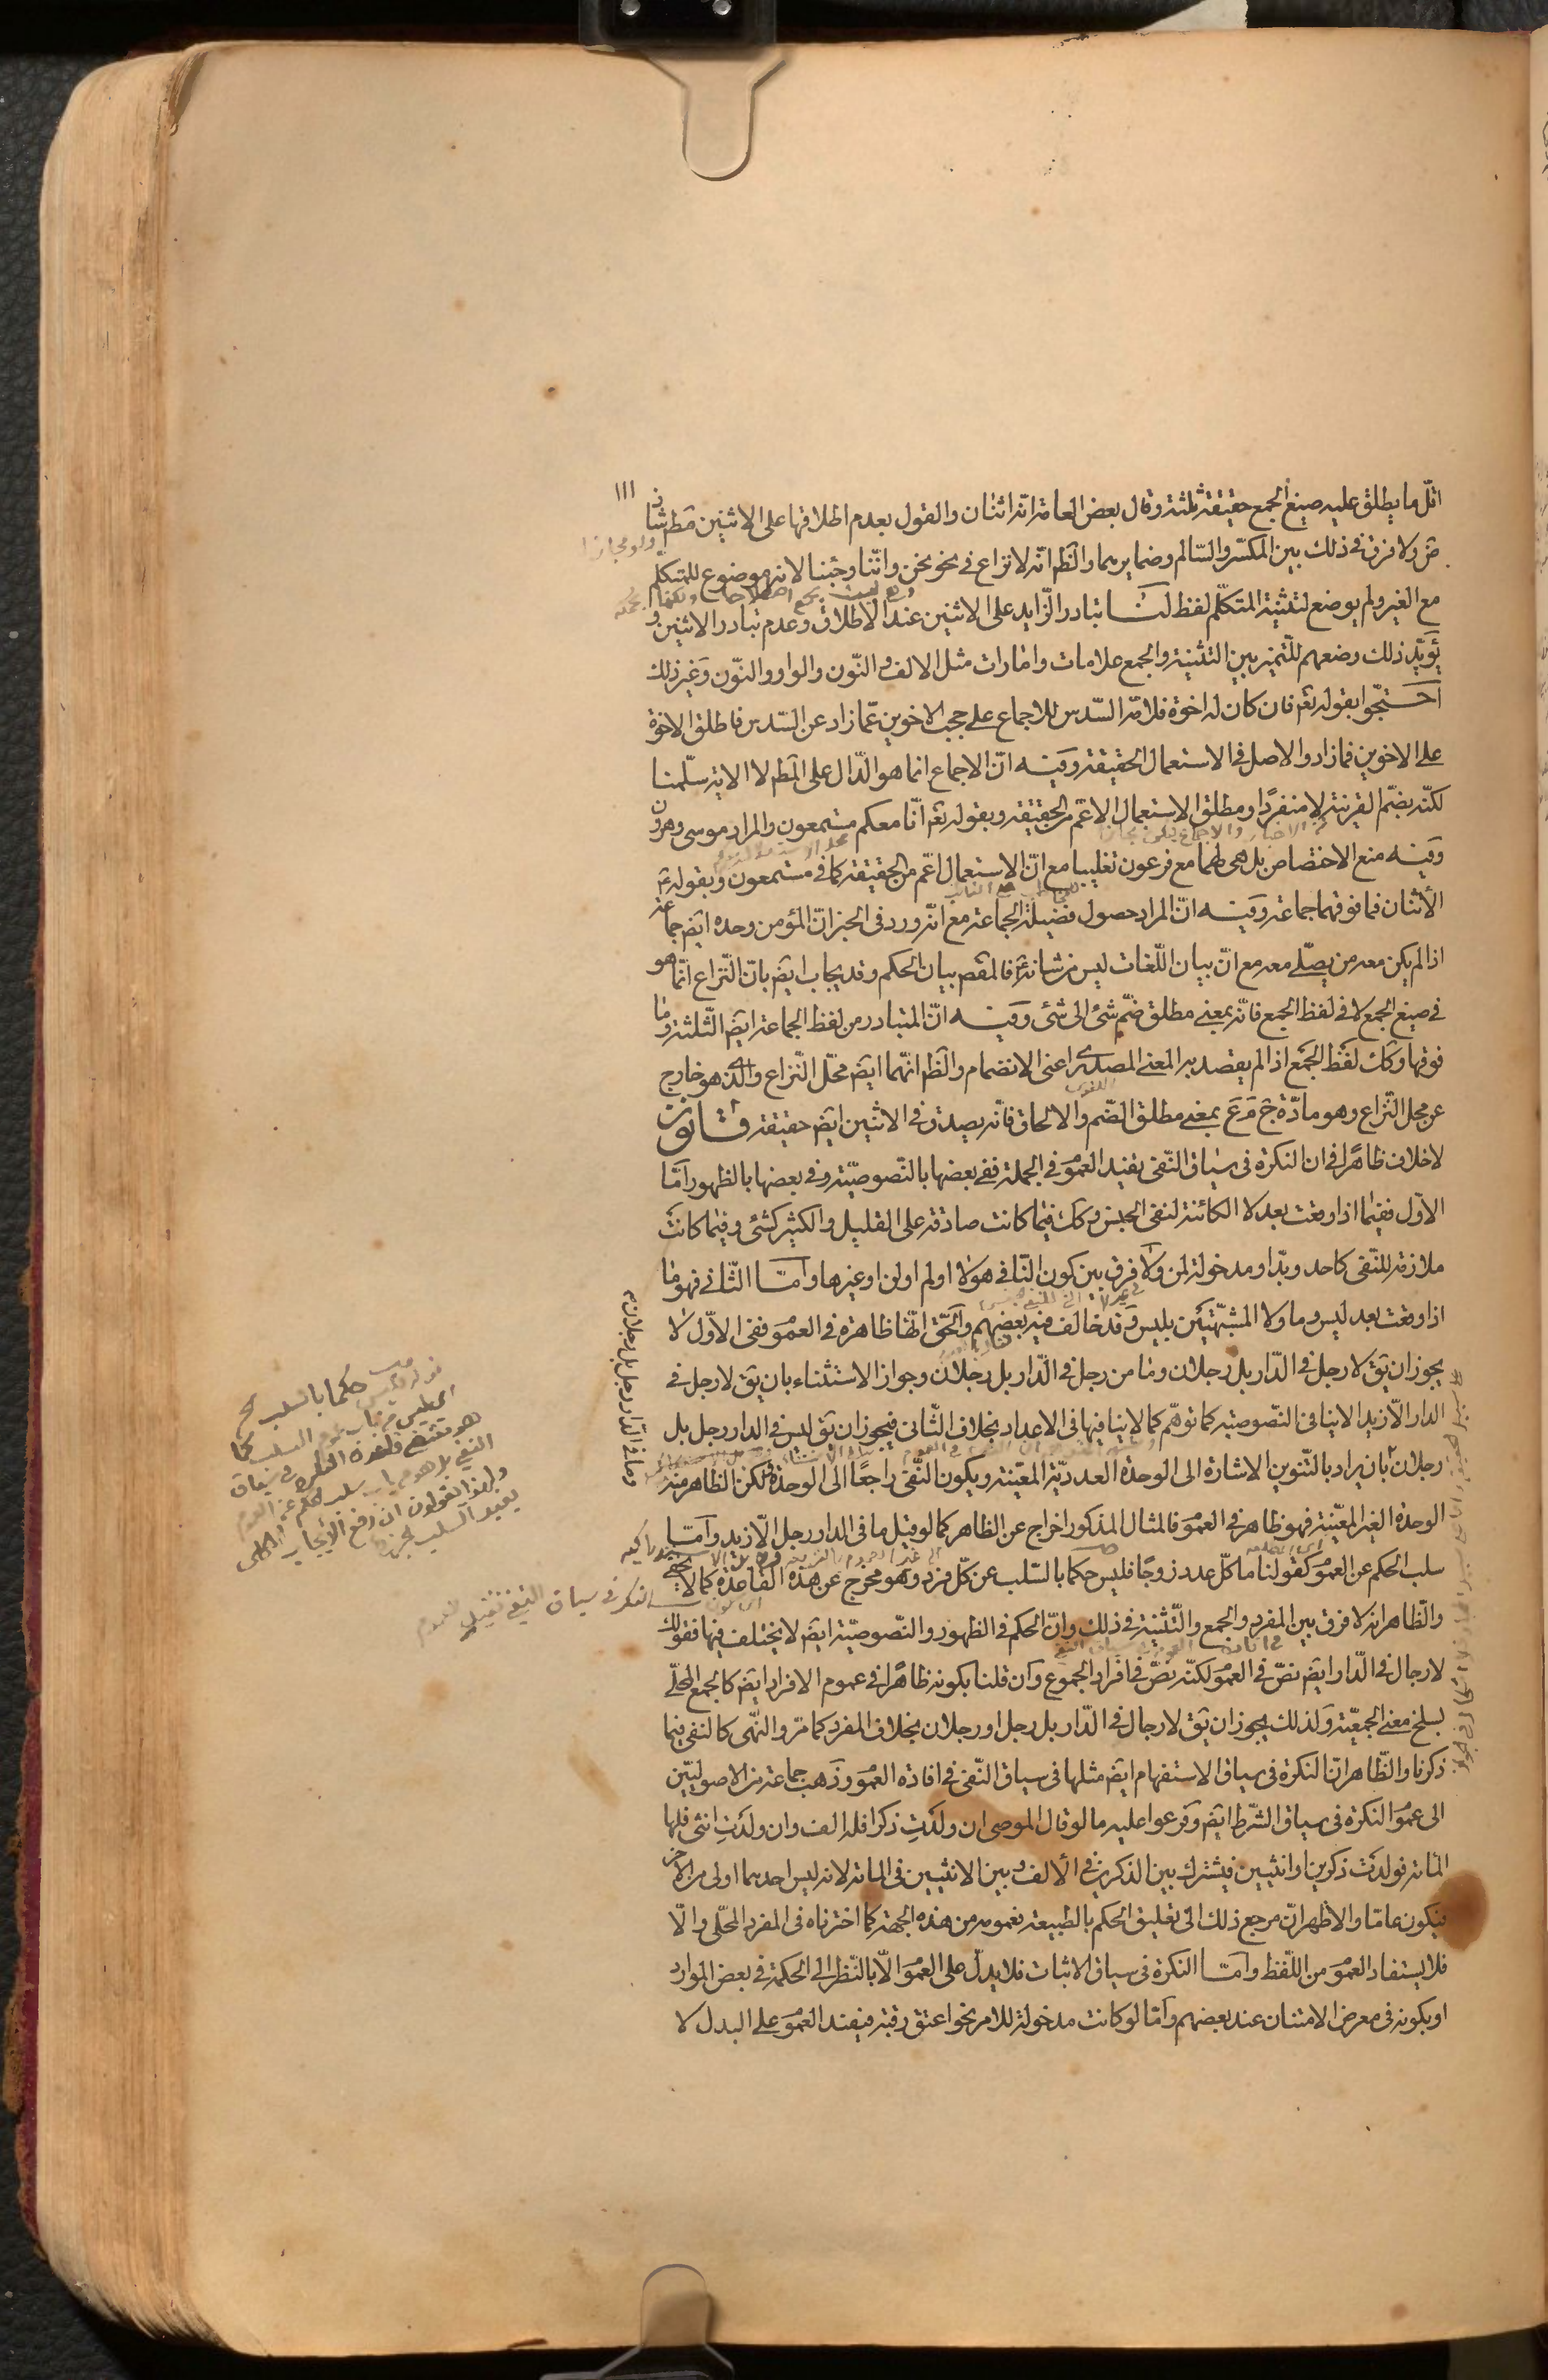 ١١١
اقلّ ما يطلق عليه صيغ الجمع حقيقة ثلثة وقال بعض العامة انّه اثنان والقول بعدم اطلاقها على الاثنين مط شاذ
ض ولا فرق في ذلك بين المكسّر والسّالم وضمايرهما والظّم انّه لا نزاع في نحو نحن وانّنا وجئنا لانه موضوع للمتكلّم
مع الغير ولم يوضع لتثنية المتكلّم لفظ لنا تبادر الزّايد على الاثنين عند الاطلاق وعدم تبادر الاثنين و
يؤيّد ذلك وضعهم للتّميز بين التثنية والجمع علامات وامارات مثل الالف والنّون والواو والنّون وغير ذلك
احتجّوا بقوله تعم فان كان له اخوة فلامّه السّدس للاجماع على حجب الاخوين عمّا زاد عن السّدس فاطلق الاخوة
على الاخوين فما زاد والاصل في الاستعمال الحقيقة وفيه انّ الاجماع انما هو الدّال على المطم لا الاية سلّمنا
لكنّه بضمّ القرينة لا منفردًا ومطلق الاستعمال الاعمّ من الحقيقة وبقوله تعم انّا معكم مستمعون والمراد موسى وهرون
وفيه منع الاختصاص بل هى لهما مع فرعون تغليبا مع انّ الاستعمال اعمّ من الحقيقة كما في مستمعون وبقوله ع
الأثنان فما فوقهما جماعة وفيه انّ المراد حصول فضيلة الجماعة مع انّه ورد في الخبر انّ المؤمن وحده ايضم جماعة
اذا لم يكن معه من يصلّى معه مع انّ بيان اللّغات ليس من شانه ع فالمقصم بيان الحكم وقد يجاب ايضم بانّ النّزاع انّما هو
في صيغ الجمع لا في لفظ الجمع فانّه بمعنى مطلق ضمّ شئ الى شئ وفيه انّ المتبادر من لفظ الجماعة ايضم الثّلثة وما
فوقها وكك لفظ الجمع اذا لم يقصد به المعنى المصدرى اعنى الانضمام والظّم انّهما ايضم محلّ النّزاع والّذى هو خارج
عن محل النّزاع وهو مادّة ج م ع بمعنى مطلق الضّم والالحاق فانّه يصدق في الاثنين ايضم حقيقة قانون
لا خلاف ظاهرًا في ان النكرة في سياق النّفى يفيد العموم في الجملة ففى بعضها بالنّصوصيّة وفي بعضها بالظهور امّا
الاوّل ففيما اذا وقعت بعد لا الكائنة لنفى الجنس وكك فيما كانت صادقة على القليل والكثير كشئ وفيما كانت
ملازمة للنّفى كاحد وبدّ او مدخولة لمن ولا فرق بين كون النّافي هو لا او لم او لن او غيرها وامّا الثّاني فهو ما
اذا وقعت بعد ليس وما ولا المشبّهتين بليس وقد خالف فيه بعضهم والحّق انّها ظاهرة في العموم ففى الاوّل لا
يجوز ان يق لا رجل في الدّار بل رجلان وما من رجل في الدّار بل رجلان وجواز الاستثناء بان يق لا رجل في
الدار الّا زيد لا ينافى النّصوصيّة كما توهّم كما لا ينافيها في الاعداد بخلاف الثّاني فيجوز ان يق ليس في الدار رجل بل
رجلان بان يراد بالتّنوين الاشارة الى الوحدة العدديّة المعيّنة ويكون النّفى راجعًا الى الوحدة ولكن الظاهر منه
الوحدة الغير المعيّنة فهو ظاهر في العموم فالمثال المذكور اخراج عن الظاهر كما لو قيل ما في الدار رجل الّا زيد وامّا
سلب الحكم عن العموم كقولنا ما كلّ عدد زوجًا فليس حكما بالسّلب عن كلّ فرد وهو مخرج عن هذه القاعدة كما لا يخفى
والظّاهر انه لا فرق بين المفرد والجمع والتّثنية في ذلك وانّ الحكم في الظهور والنّصوصيّة ايضم لا يختلف فيها فقولك
لا رجال في الدّار ايضم نصّ في العموم لكنّه نصّ في افراد الجموع وان قلنا بكونه ظاهرًا في عموم الافراد ايضم كالجمع المحلّى
لسلخ معنى الجمعيّة ولذلك يجوز ان يق لا رجال في الدّار بل رجل او رجلان بخلاف المفرد كما مرّ والنّهى كالنفى فيما
ذكرنا والظّاهر انّ النكرة في سياق الاستفهام ايضم مثلها في سياق النّفى في افادة العموم وذهب جماعة من الاصوليّين
الى عموم النكرة في سياق الشّرط ايضم وفرعوا عليه ما لو قال الموصى ان ولدتِ ذكرا فله الف وان ولدتِ انثى فلها
المائة فولدت ذكرين او انثيين فيشترك بين الذكرين في الالف وبين الانثيين في المائة لانه ليس احدهما اولى من الاخر
فيكون عامّا والاظهر انّ مرجع ذلك الى تعليق الحكم بالطبيعة فعمومه من هذه الجهة كما اخترناه في المفرد المحلّى والّا
فلا يستفاد العموم من اللّفظ وامّا النكرة في سياق الاثبات فلا يدلّ على العموم الّا بالنّظر الى الحكمة في بعض الموارد
او بكونه في معرض الامتنان عند بعضهم وامّا لو كانت مدخولة للامر نحو اعتق رقبة فيفيد العموم على البدل لا
وما في الدّار رجل بل رجلان
حكما بالسلب
هو مقتضى قاعدة النكرة في سياق
النفى بل هو من باب سلب الحكم عن العموم
ولهذا يقولون ان رفع الايجاب الكلى
يفيد السلب الجزئى
النكرة في سياق النفى تفيد العموم